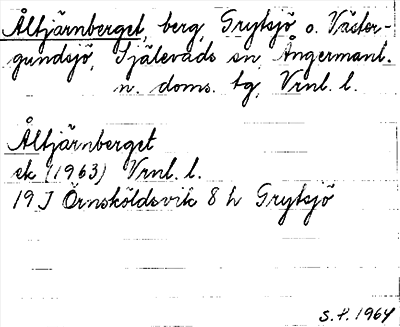 Åltjärnberget, berg, Grytsjö o. Väster-
gundsjö, Själevads sn, Ångermanl.
n. doms. tg, Vrnl. l.
Åltjärnberget
ek (1963) Vrnl. l.
19 J Örnsköldsvik 8 h Grytsjö
S.P. 1964